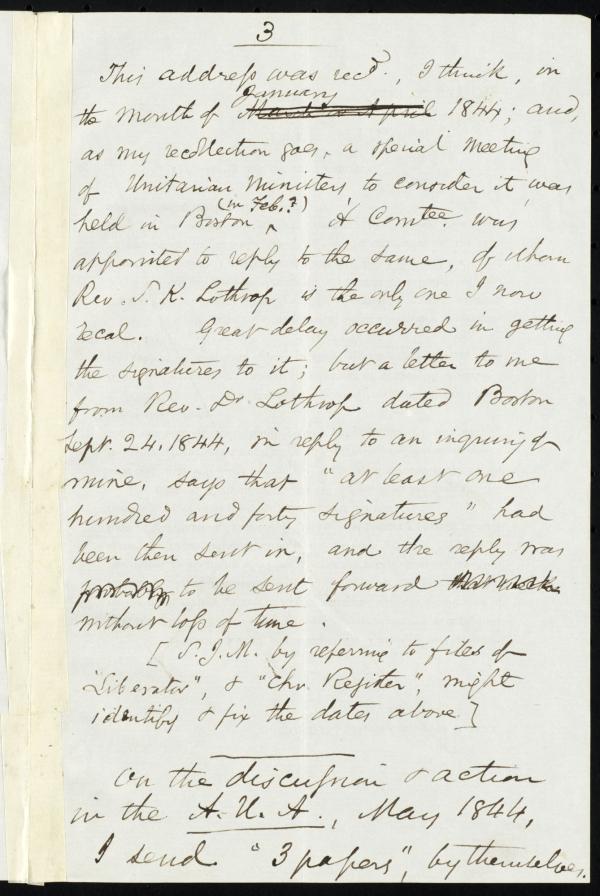 3
This address was recd., I think, in
January
the month of March or April 1844; and,
as my recollection goes, a special meeting
of Unitarian Ministers, to consider it, was
(in Feb.?)
held in Boston, A Comtee. was
appointed to reply to the same, of whom
Rev. S. K. Lothrop is the only one I now
recal. Great delay occurred in getting
the signatures to it; but a letter to me
from Rev. Dr. Lothrop dated Boston
Sept. 24, 1844, in reply to an inquiry of
mine, says that "at least one
hundred and forty signatures" had
been then sent in, and the reply was
probably to be sent forward that week
without loss of time.
[S. J. M. by referring to files of
"Liberator", & "Chr. Register", might
identify & fix the dates above]
On the discussion & action
in the A. U. A., May 1844,
I send "3 papers", by themselves.